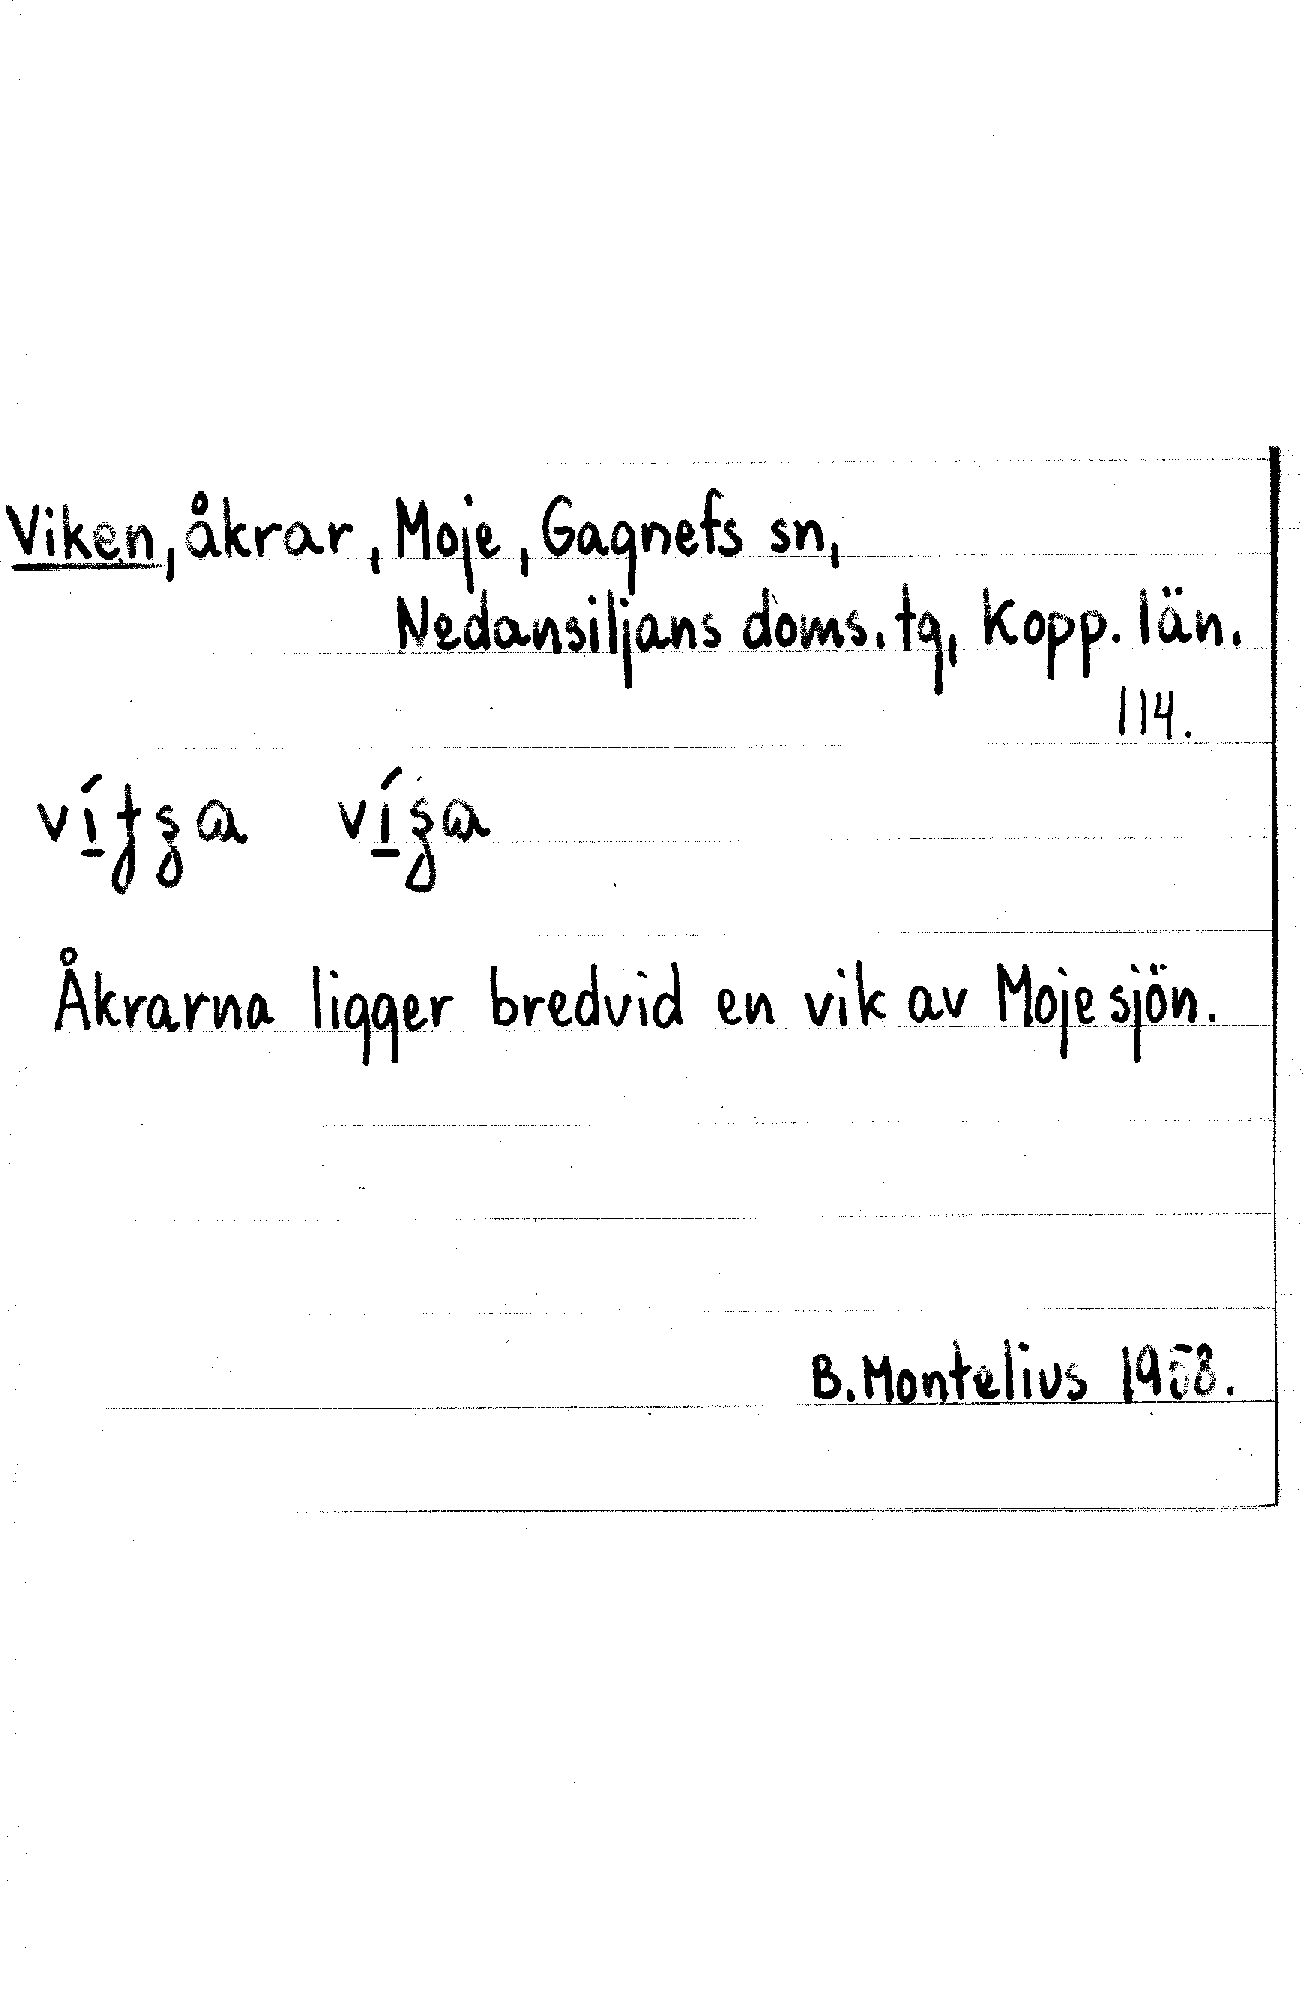 Viken, åkrar, Moje, Gagnefs sn,
Nedansiljans doms. tg, Kopp. län.
114.
Åkrarna ligger bredvid en vik av Mojesjön.
B. Montelius 1958.